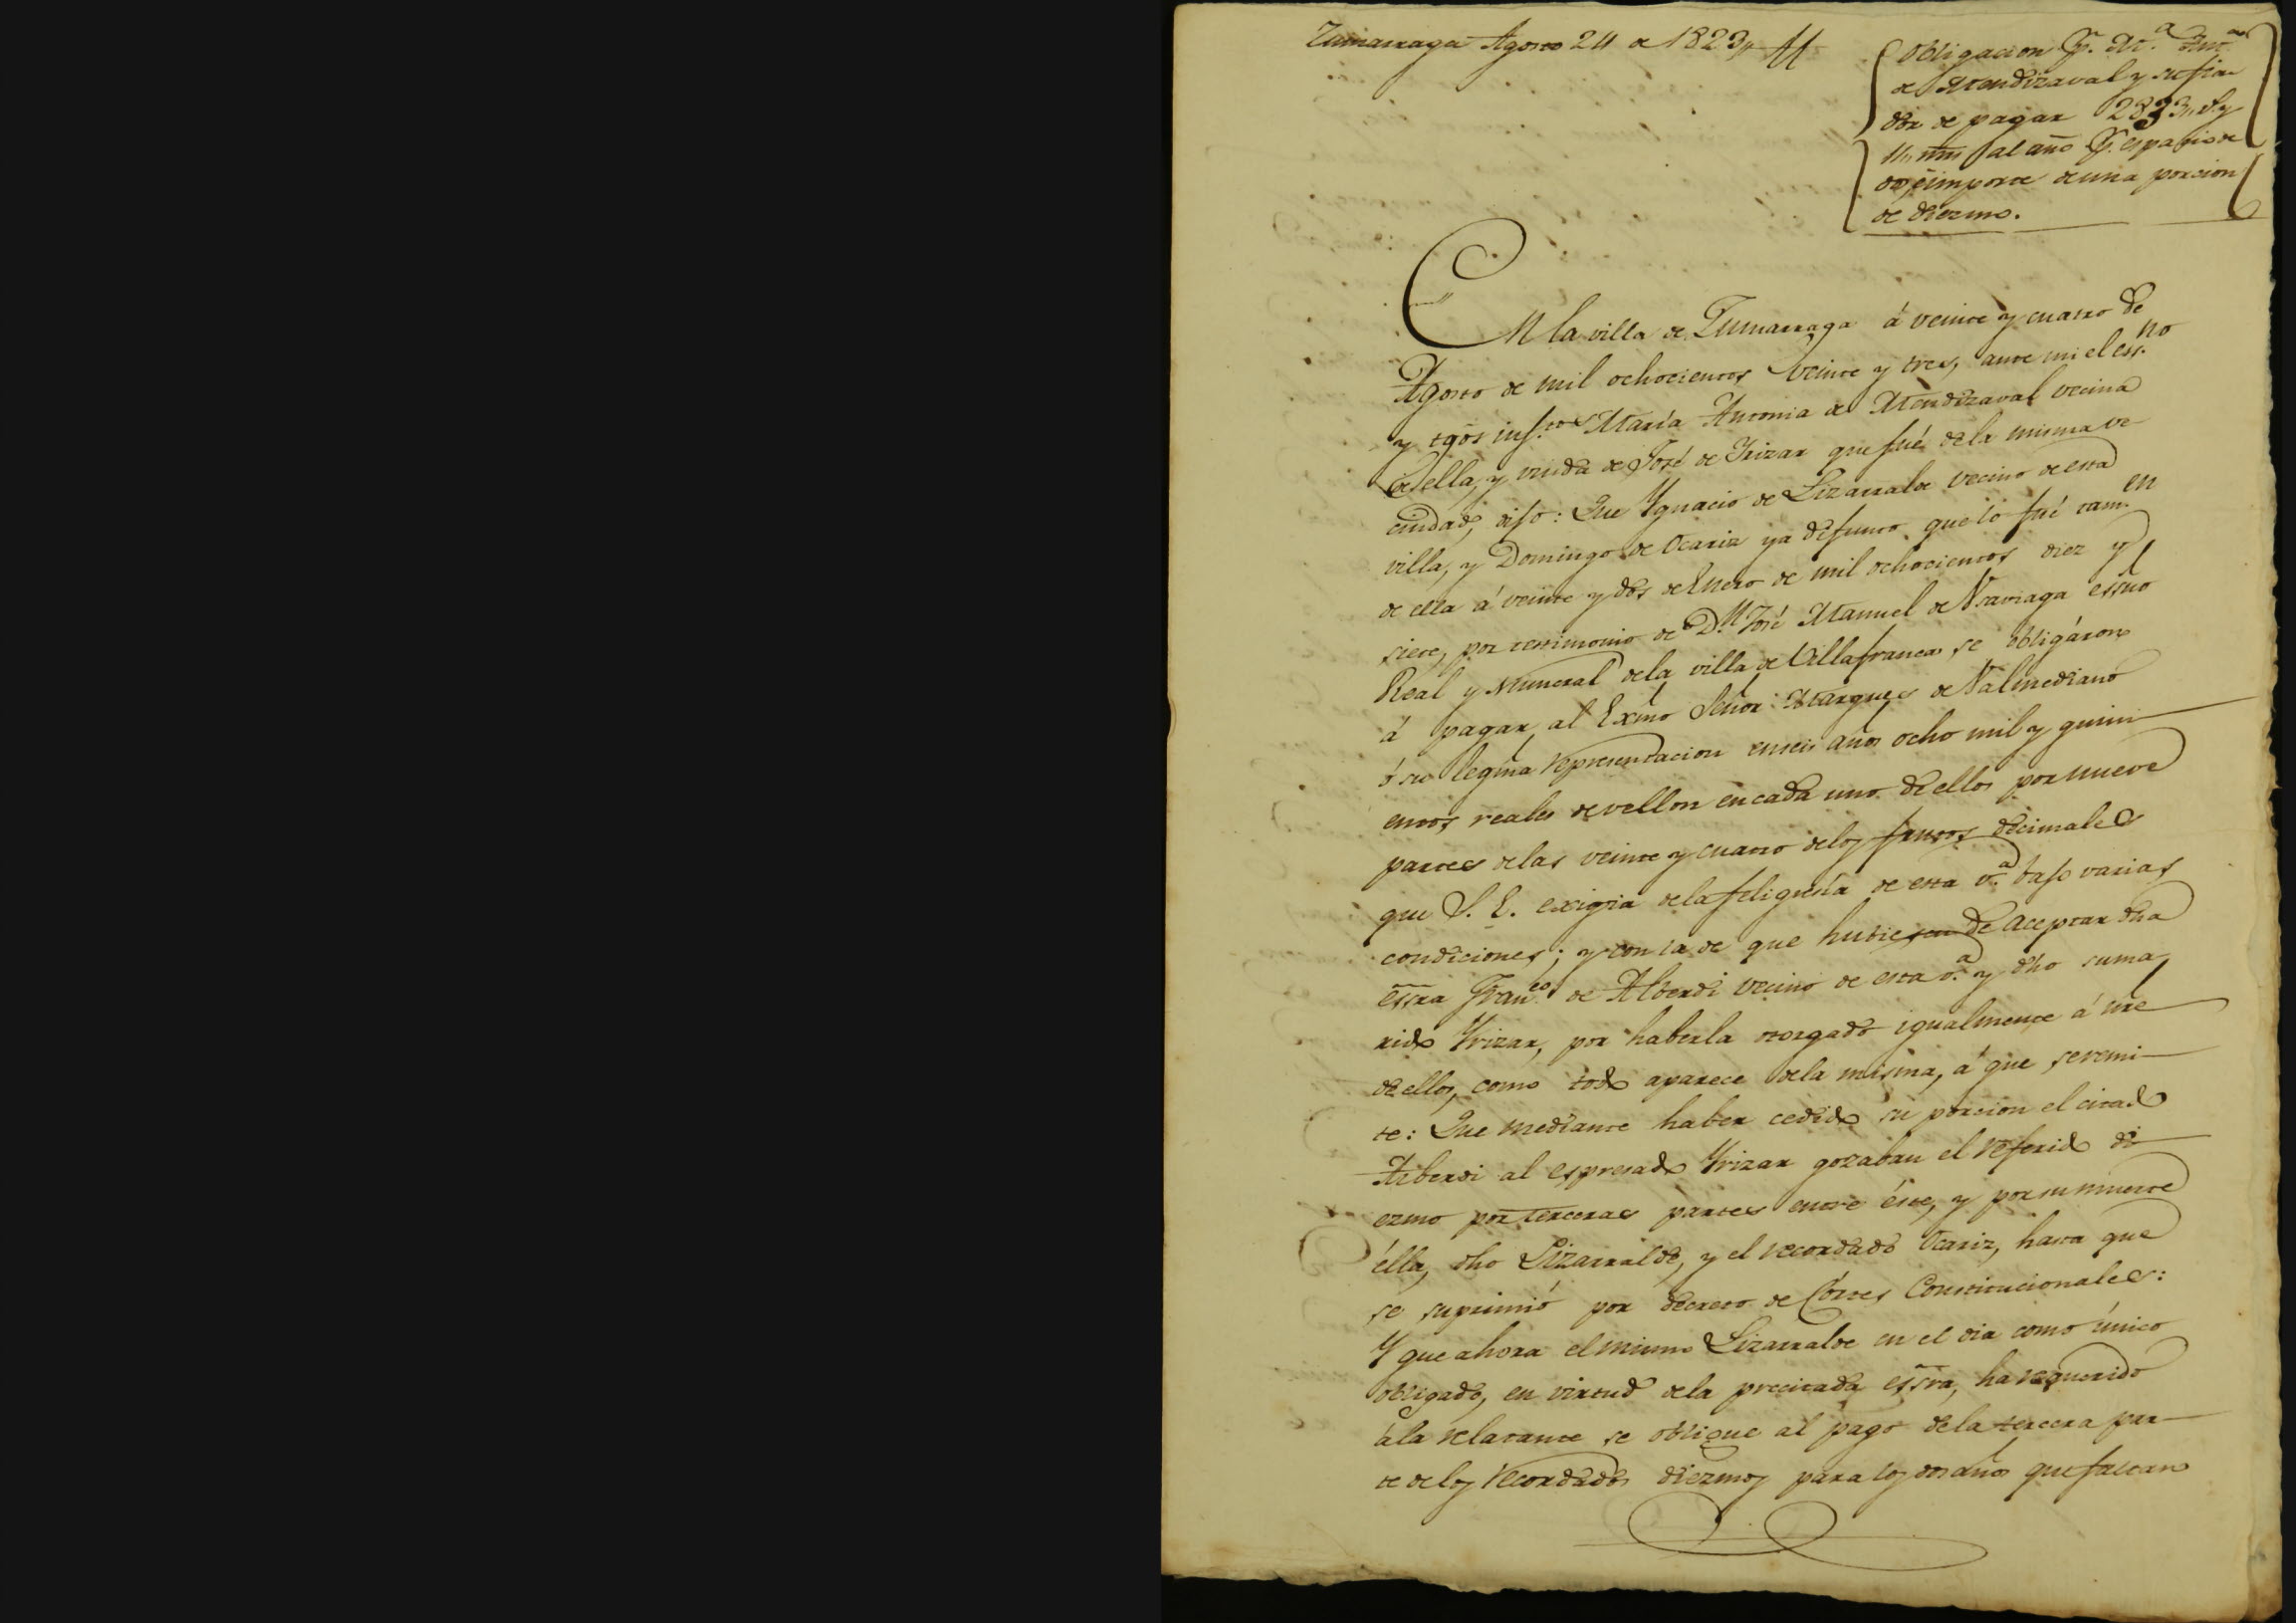 Zumarraga Agosto 24 de 1823
Obligacion Pr. Ma. Anta
de Mendizaval y su fia-
dor de pagar 2833 rs. y
11 mrs al año Pr. espacio de
dos, importe de una porcion
de diezmo.
En la villa de Zumarraga á veinte y cuatro de
Agosto de mil ochocientos veinte y tres, ante mi el essno
y tgōs infrtos María Antonia de Mendizaval vecina
de ella, y viuda de José de Yrizar que fué de la misma ve-
cindad, dijo: Que Ygnacio de Lizarralde vecino de esta
villa, y Domingo de Ocariz ya difunto que lo fué tamen
de ella á veinte y dos de Enero de mil ochocientos diez y
siete, por testimonio de Dn José Manuel de essño
Real y Numeral de la villa de Villafranca se obligáron
á pagar al Exmo Señor Marques de Valmediano
ó su legma representacion en seis años ocho mil y quini-
entos reales de vellon en cada uno de ellos por nueve
partes de las veinte y cuatro de los frutos decimales
que S. E. exigia de la feligresía de esta va. bajo varias
condiciones; y con la de que hubiesen de aceptar dha
essra Franco de Alberdi vecino de esta va. y dho su ma-
rido Yrizar, por haberla otorgado igualmente á una
de ellos, como todo aparece de la misma, á que se remi-
te: Que mediante haber cedido su porcion el citado
Alberdi al espresado Yrizar gozaban el referido di-
ezmo por terceras partes entre éste, y por su muerte
élla, dho Lizarralde, y el recordado Ocariz, hasta que
se suprimió por decreto de Córtes Constitucionales:
Y que ahora el mismo Lizarralde en el dia como único
obligado, en virtud de la precitada essra, ha requerido
á la relatante se obligue al pago de la tercera par-
te de los recordados diezmos para los dos años que faltan